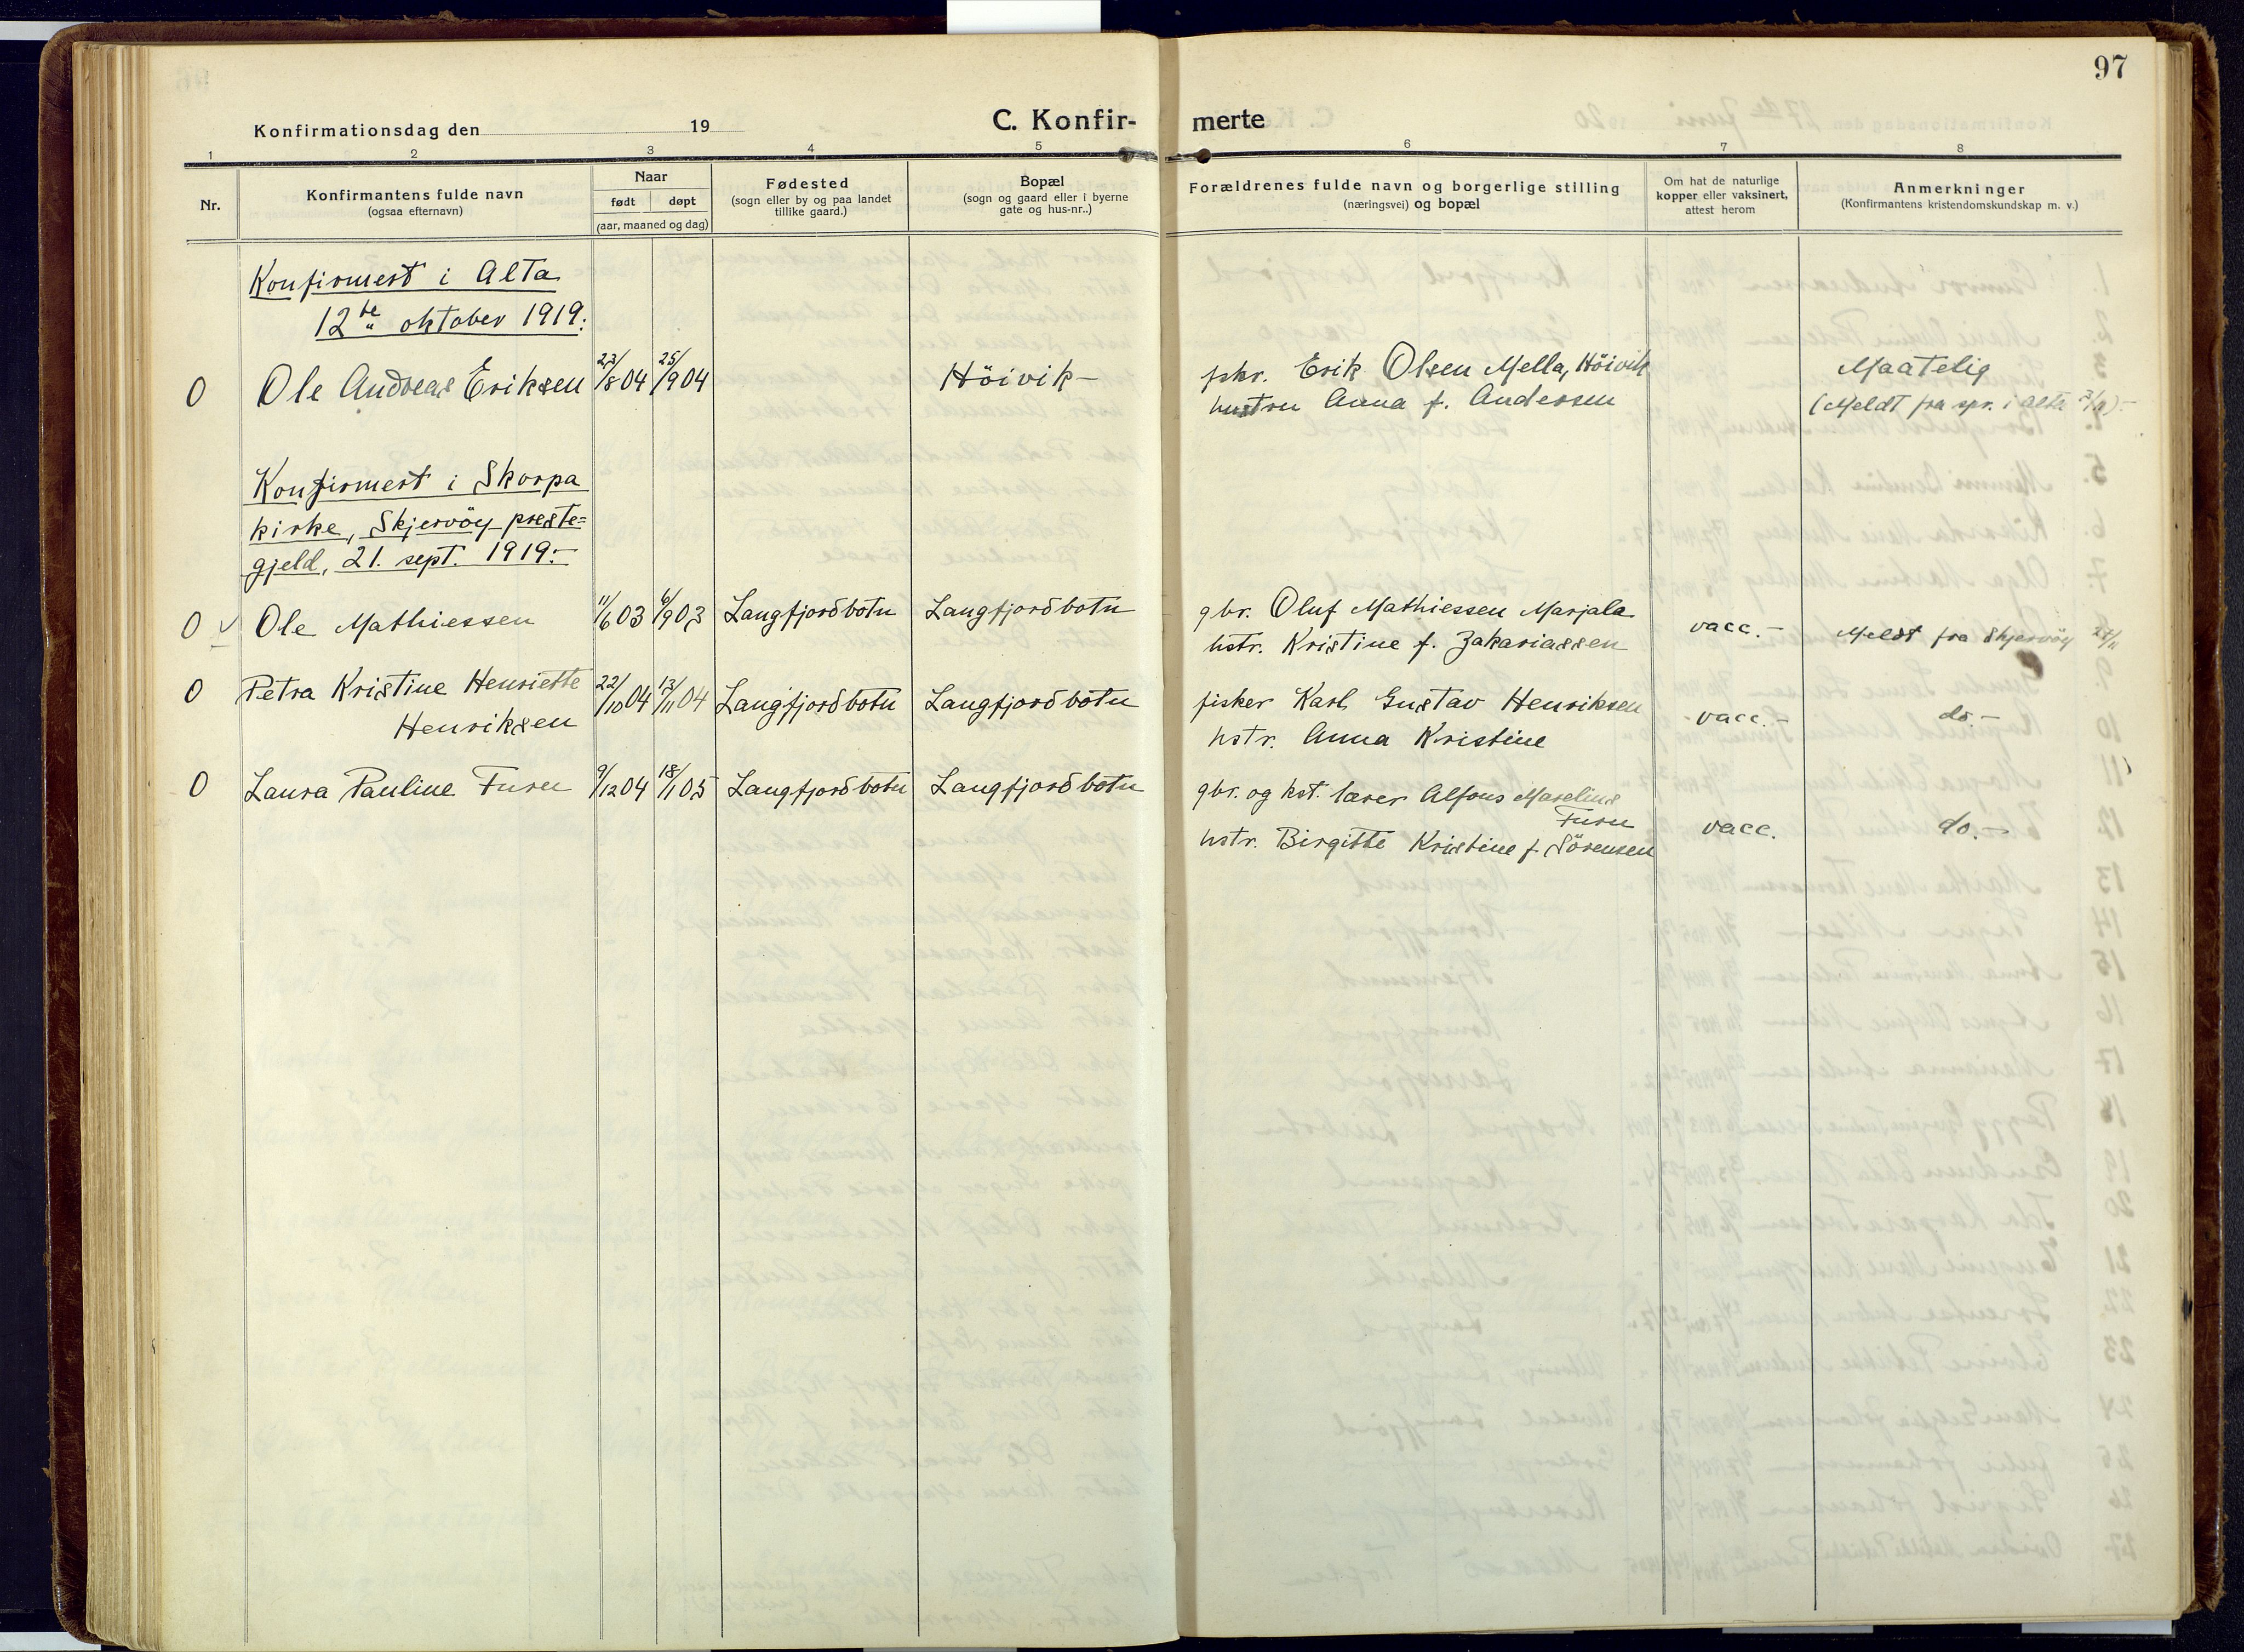 97
Konfirmationsdag den 19
C. Konfir-merte
1 2 3 4 5 6 7 8
Nr.
Konfirmantens fulde navn
(ogsaa efternavn)
Naar
født døpt
(aar, maaned og dag)
Fødested
(sogn eller by og paa landet
tillike gaard.)
Bopæl
(sogn og gaard eller i byerne
gate og hus-nr..)
Forældrenes fulde navn og borgerlige stilling
(næringsvei) og bopæl
Om hat de naturlige
kopper eller vaksinert,
attest herom
Anmerkninger
(Konfirmantens kristendomskundskap m. v.)
Konfirmert i Alta
12te oktober 1919:
0 Ole Andreas Eriksen 23/8 04 25/9 04 Höivik- fskr. Erik Olsen Mella, Höivik Maatelig
hustru Anna f. Andersen (Meldt fra spr. i Alta
Konfirmert i Skorpa
kirke, Skjervöy preste=
gjeld, 21. sept. 1919:-
0 ✓ Ole Mathiessen 11/6 03 6/9 03 Langfjordbotn Langfjordbotn gbr. Oluf Mathiessen Marjala vacc.- Meldt fra Skjervöy 24/11
hstr. Kristine f. Zakariassen
0 Petra Kristine Henriette 22/10 04 13/11 04 Langfjordbotn Langfjordbotn fisker Karl Gustav Henriksen vacc.- do.-
Henriksen hstr. Anna Kristine
0 Laura Pauline Furu 9/12 04 18/1 05 Langfjordbotn Langfjordbotn gbr. og kst. lærer Alfons Marelius
Furu vacc. do.-
hstr. Birgitte Kristine f. Sörensen